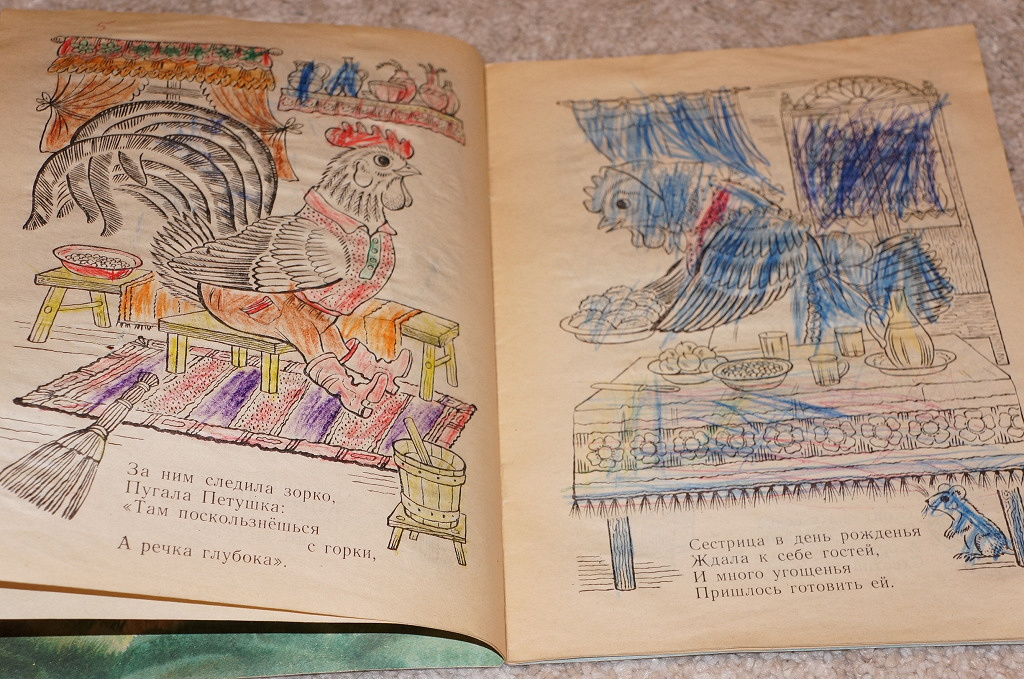 За ним следила зорко,
Пугала Петушка:
«Там поскользнёшься
с горки,
А речка глубока».
Сестрица в день рожденья
Ждала к себе гостей,
И много угощенья
Пришлось готовить ей.